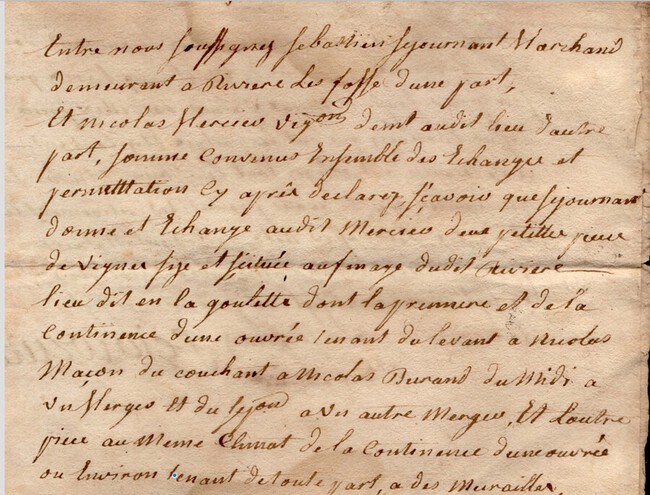 Entre nous soussignez sebastien sejournant Marchand
demeurant a Riviere les fosse dune part,
Et Nicolas Mercier Vigon demt audit lieu dautre
part, somme Convenus Ensemble des Echanges et
permutation Cy aprés declarez, sçavoir que sejournant
donne et Echange audit Mercier deux petitte piece
de Vignes size et scituée au finage dudit Riviere
lieu dit en la goulette dont la premiere est de la
Continence dune ouvrée tenant du levant a Nicolas
Maçon du couchant a Nicolas Durand du Midi a
un Merger Et du sejond a un autre Merger, Et Lautre
piece au Meme Climat de la Continence dune ouvrée
ou Environ tenant de toute part, a des Murailles,